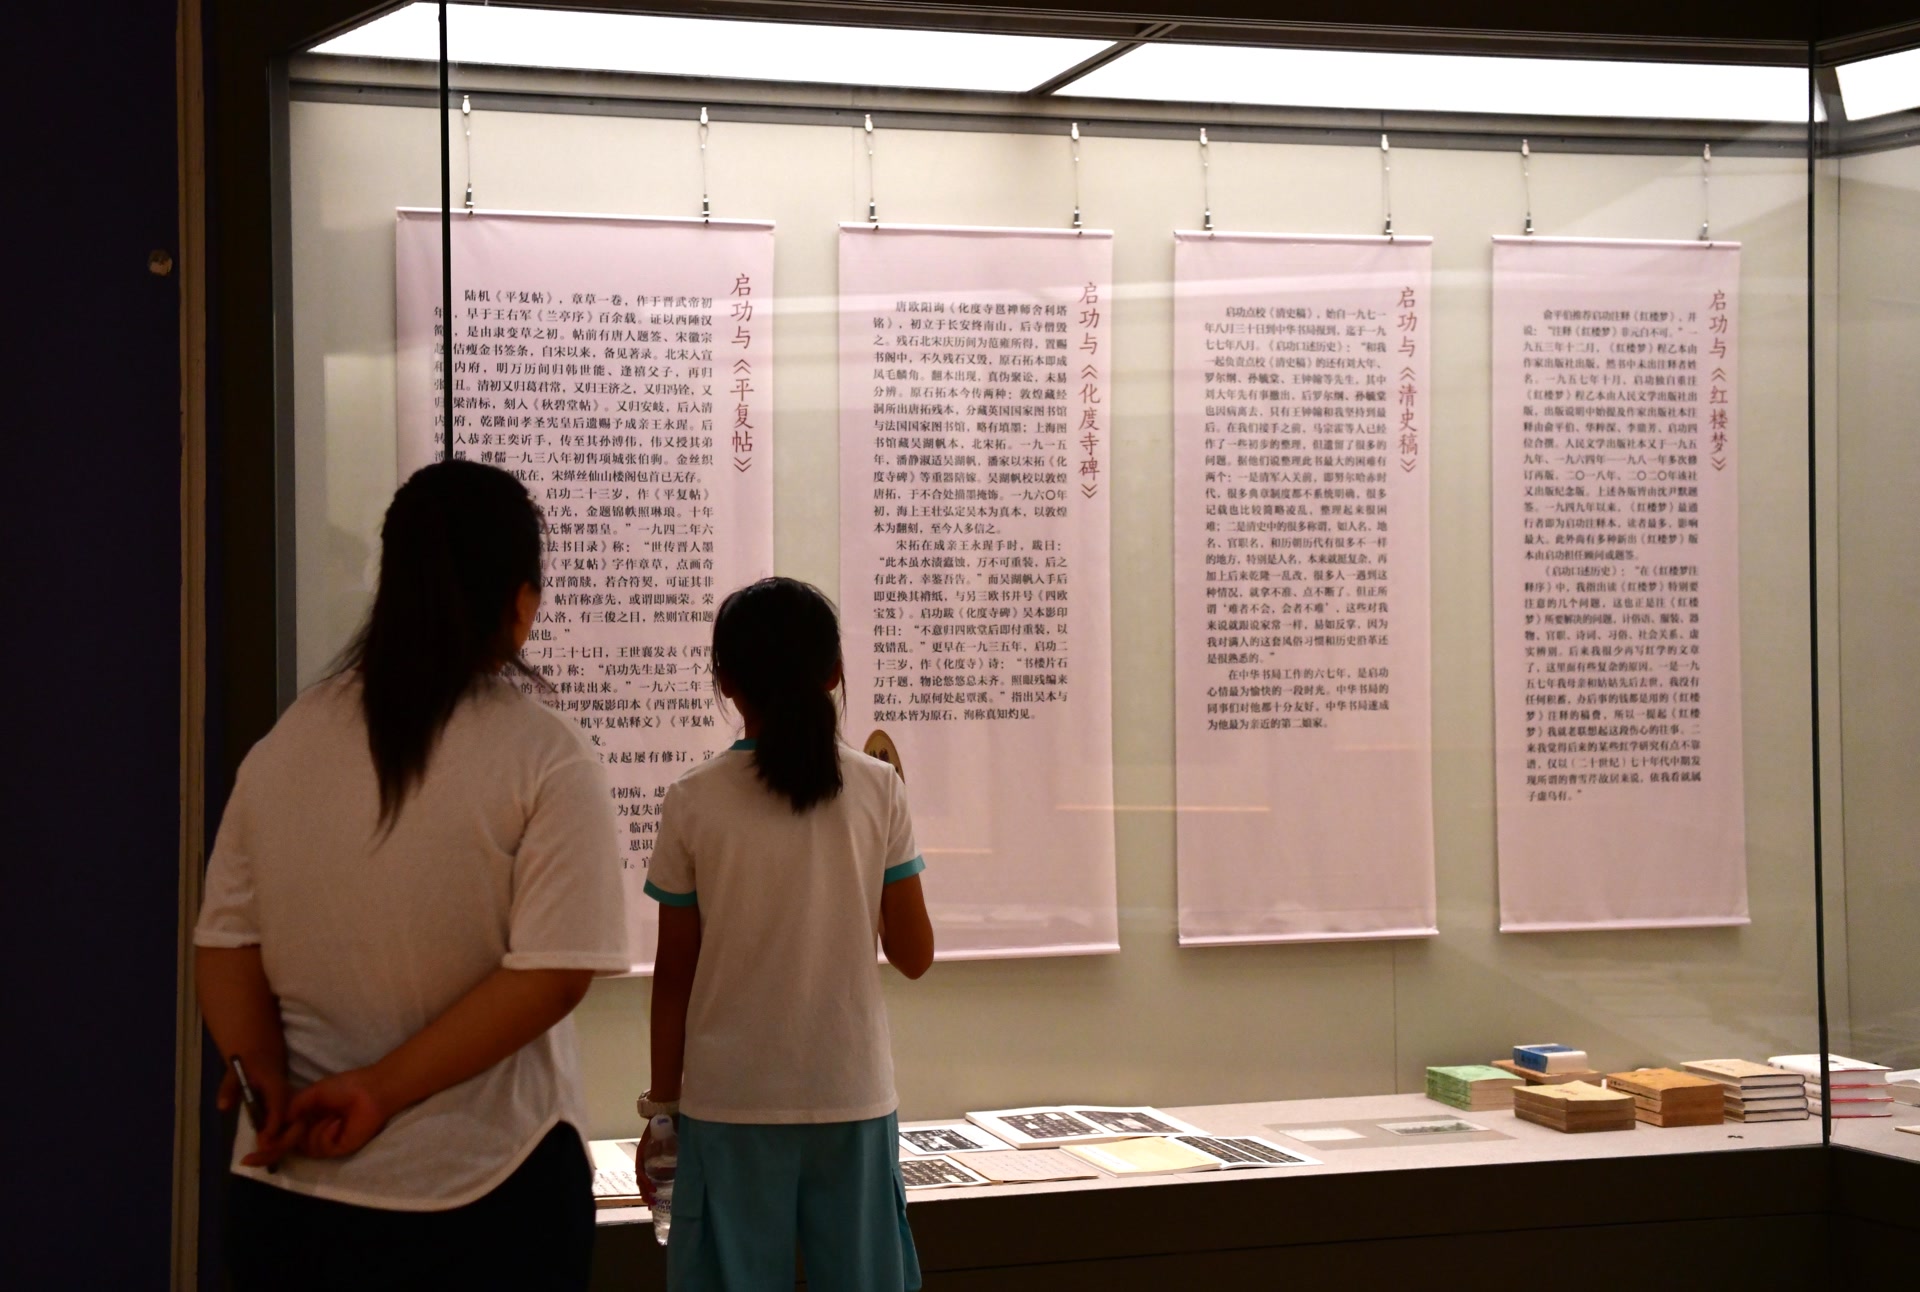 启功与《平复帖》
陆机《平复帖》，章草一卷，作于晋武帝初
年，早于王右军《兰亭序》百余载。证以西陲汉
简，是由隶变草之初。帖前有唐人题签、宋徽宗
赵佶瘦金书签条，自宋以来，备见著录。北宋入宣
和内府，明万历间归韩世能、逢禧父子，再归
张丑。清初又归葛君常，又归王济之，又归冯铨，又
归梁清标，刻入《秋碧堂帖》。又归安岐，后入清
内府，乾隆间孝圣宪皇后遗赐予成亲王永瑆。后
转入恭亲王奕訢手，传至其孙溥伟，伟又授其弟
溥儒。溥儒一九三八年初售项城张伯驹。金丝织
犹在，宋缂丝仙山楼阁包首已无存。
，启功二十三岁，作《平复帖》
古光，金题锦帙照琳琅。十年
无惭署墨皇。”一九四二年六
法书目录》称：“世传晋人墨
《平复帖》字作章草，点画奇
汉晋简牍，若合符契，可证其非
。帖首称彦先，或谓即顾荣。荣
同入洛，有三俊之目，然则宣和题
据也。”
年一月二十七日，王世襄发表《西晋
考略》称：“启功先生是第一个人
的全文释读出来。”一九六二年三
版社珂罗版影印本《西晋陆机平
机平复帖释文》《平复帖
改。
发表起屡有修订，定
初病，虑
为复失前
。临西
思识
有。宜
启功与《化度寺碑》
唐欧阳询《化度寺邕禅师舍利塔
铭》，初立于长安终南山，后寺僧毁
之。残石北宋庆历间为范雍所得，置赐
书阁中，不久残石又毁，原石拓本即成
凤毛麟角。翻本出现，真伪聚讼，未易
分辨。原石拓本今传两种：敦煌藏经
洞所出唐拓残本，分藏英国国家图书馆
与法国国家图书馆，略有填墨；上海图
书馆藏吴湖帆本，北宋拓。一九一五
年，潘静淑适吴湖帆，潘家以宋拓《化
度寺碑》等重器陪嫁。吴湖帆校以敦煌
唐拓，于不合处描墨掩饰。一九六〇年
初，海上王壮弘定吴本为真本，以敦煌
本为翻刻，至今人多信之。
宋拓在成亲王永瑆手时，跋曰：
“此本虽水渍蠹蚀，万不可重装，后之
有此者，幸鉴吾告。”而吴湖帆入手后
即更换其褙纸，与另三欧书并号《四欧
宝笈》。启功跋《化度寺碑》吴本影印
件曰：“不意归四欧堂后即付重装，以
致错乱。”更早在一九三五年，启功二
十三岁，作《化度寺》诗：“书楼片石
万千题，物论悠悠总未齐。照眼残编来
陇右，九原何处起覃溪。”指出吴本与
敦煌本皆为原石，洵称真知灼见。
启功与《清史稿》
启功点校《清史稿》，始自一九七一
年八月三十日到中华书局报到，迄于一九
七七年八月。《启功口述历史》：“和我
一起负责点校《清史稿》的还有刘大年、
罗尔纲、孙毓棠、王钟翰等先生，其中
刘大年先有事撤出，后罗尔纲、孙毓棠
也因病离去，只有王钟翰和我坚持到最
后。在我们接手之前，马宗霍等人已经
作了一些初步的整理，但遗留了很多的
问题。据他们说整理此书最大的困难有
两个：一是清军入关前，即努尔哈赤时
代，很多典章制度都不系统明确，很多
记载也比较简略凌乱，整理起来很困
难；二是清史中的很多称谓，如人名、地
名、官职名，和历朝历代有很多不一样
的地方，特别是人名，本来就挺复杂，再
加上后来乾隆一乱改，很多人一遇到这
种情况，就拿不准、点不断了。但正所
谓‘难者不会，会者不难’，这些对我
来说就跟说家常一样，易如反掌，因为
我对满人的这套风俗习惯和历史沿革还
是很熟悉的。”
在中华书局工作的六七年，是启功
心情最为愉快的一段时光。中华书局的
同事们对他都十分友好，中华书局遂成
为他最为亲近的第二娘家。
启功与《红楼梦》
俞平伯推荐启功注释《红楼梦》，并
说：“注释《红楼梦》非元白不可。”一
九五三年十二月，《红楼梦》程乙本由
作家出版社出版，然书中未出注释者姓
名。一九五七年十月，启功独自重注
《红楼梦》程乙本由人民文学出版社出
版，出版说明中始提及作家出版社本注
释由俞平伯、华粹深、李鼎芳、启功四
位合撰。人民文学出版社本又于一九五
九年、一九六四年一一九八一年多次修
订再版。二〇一八年、二〇二〇年该社
又出版纪念版。上述各版皆由沈尹默题
签。一九四九年以来，《红楼梦》最通
行者即为启功注释本，读者最多，影响
最大。此外尚有多种新出《红楼梦》版
本由启功担任顾问或题签。
《启功口述历史》：“在《红楼梦注
释序》中，我指出读《红楼梦》特别要
注意的几个问题，这也正是注《红楼
梦》所要解决的问题，计俗语、服装、器
物、官职、诗词、习俗、社会关系、虚
实辨别。后来我很少再写红学的文章
了，这里面有些复杂的原因。一是一九
五七年我母亲和姑姑先后去世，我没有
任何积蓄，办后事的钱都是用的《红楼
梦》注释的稿费，所以一提起《红楼
梦》我就老联想起这段伤心的往事。二
来我觉得后来的某些红学研究有点不靠
谱，仅以（二十世纪）七十年代中期发
现所谓的曹雪芹故居来说，依我看就属
子虚乌有。”